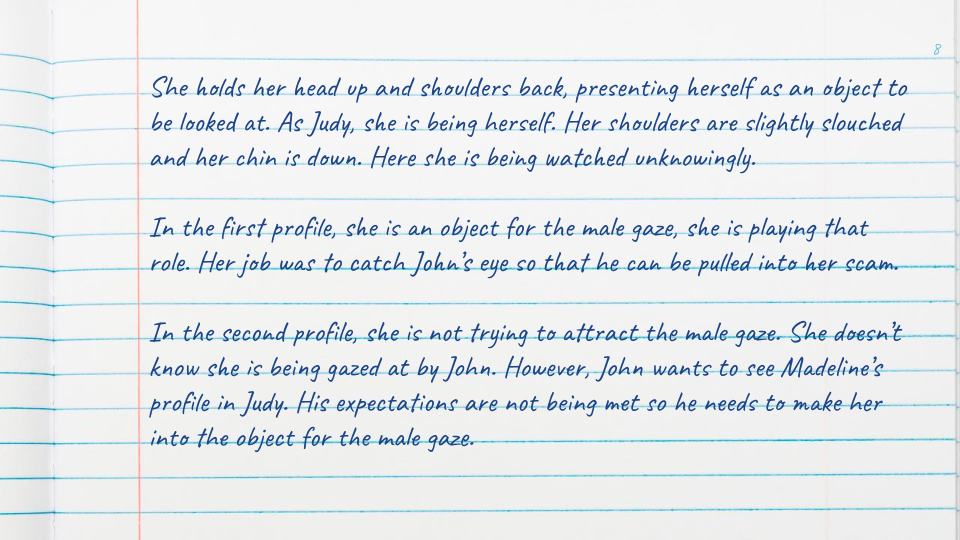 8
She holds her head up and shoulders back, presenting herself as an object to
be looked at. As Judy, she is being herself. Her shoulders are slightly slouched
and her chin is down. Here she is being watched unknowingly.
In the first profile, she is an object for the male gaze, she is playing that
role. Her job was to catch John's eye so that he can be pulled into her scam.
In the second profile, she is not trying to attract the male gaze. She doesn't
know she is being gazed at by John. However, John wants to see Madeline's
profile in Judy. His expectations are not being met so he needs to make her
into the object for the male gaze.